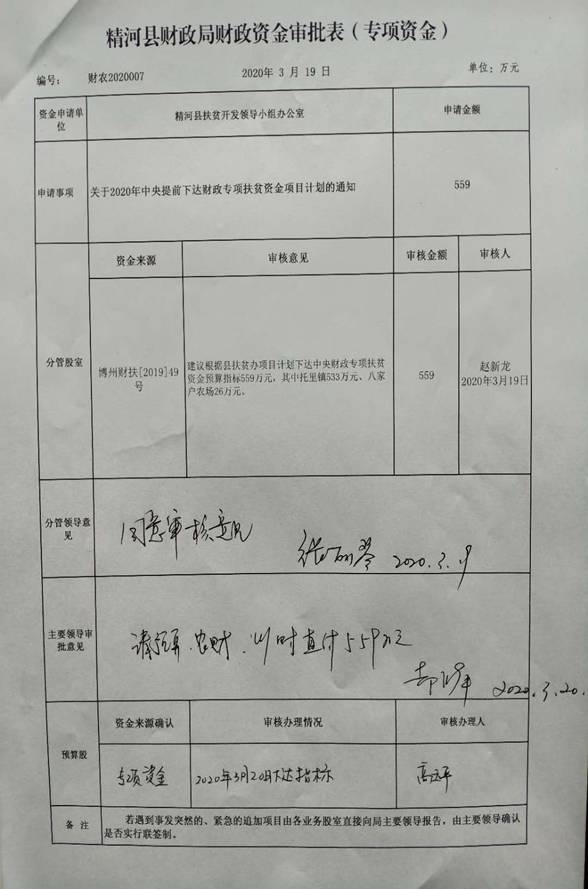 精河县财政局财政资金审批表（专项资金）
编号： 财农2020007 2020年 3 月 19 日 单位：万元
资金申请单位 精河县扶贫开发领导小组办公室 申请金额
申请事项 关于2020年中央提前下达财政专项扶贫资金项目计划的通知 559
资金来源 审核意见 审核金额 审核人
分管股室
博州财扶[2019]49
号
建议根据县扶贫办项目计划下达中央财政专项扶贫
资金预算指标559万元，其中托里镇533万元、八家
户农场26万元。
559
赵新龙
2020年3月19日
分管领导意
见
同意审核意见
张丽琴 2020.3.19
主要领导审
批意见
请预算、农财、及时直付559万元
2020.3.20.
资金来源确认 审核办理情况 审核办理人
预算股
专项资金 2020年3月20日下达指标
备 注
若遇到事发突然的、紧急的追加项目由各业务股室直接向局主要领导报告，由主要领导确认
是否实行联签制。